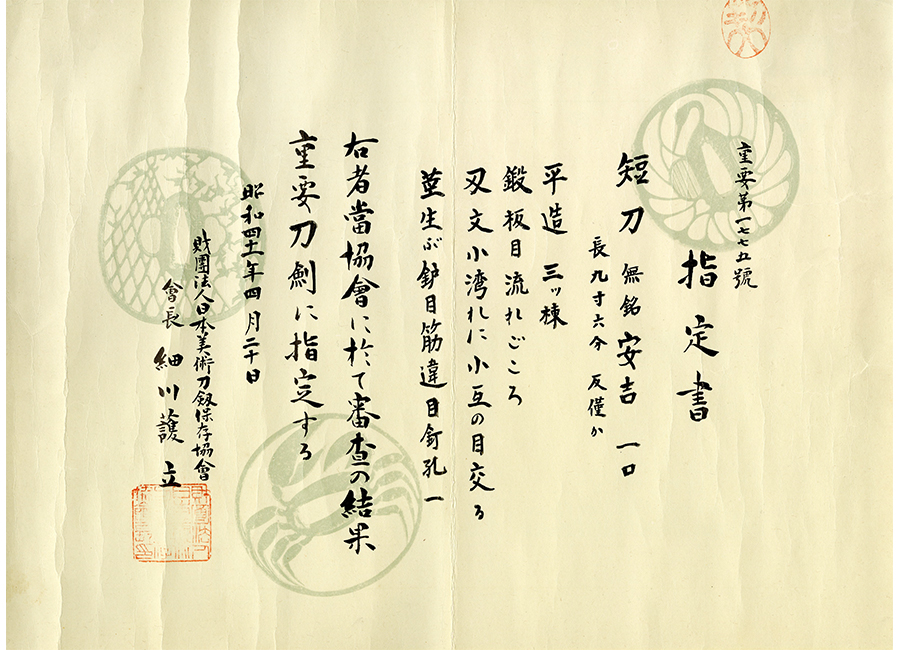 重要第一七七五號
指定書
短刀 無銘 安吉 一口
長九寸六分 反僅か
平造 三ッ棟
鍛 板目流れごころ
刃文 小湾れに小互の目交る
茎 生ぶ 鑢目筋違 目釘孔一
右者當協會に於て審査の結果
重要刀劍に指定する
昭和四十一年四月二十日
財團法人日本美術刀劔保存協會
會長 細川護立